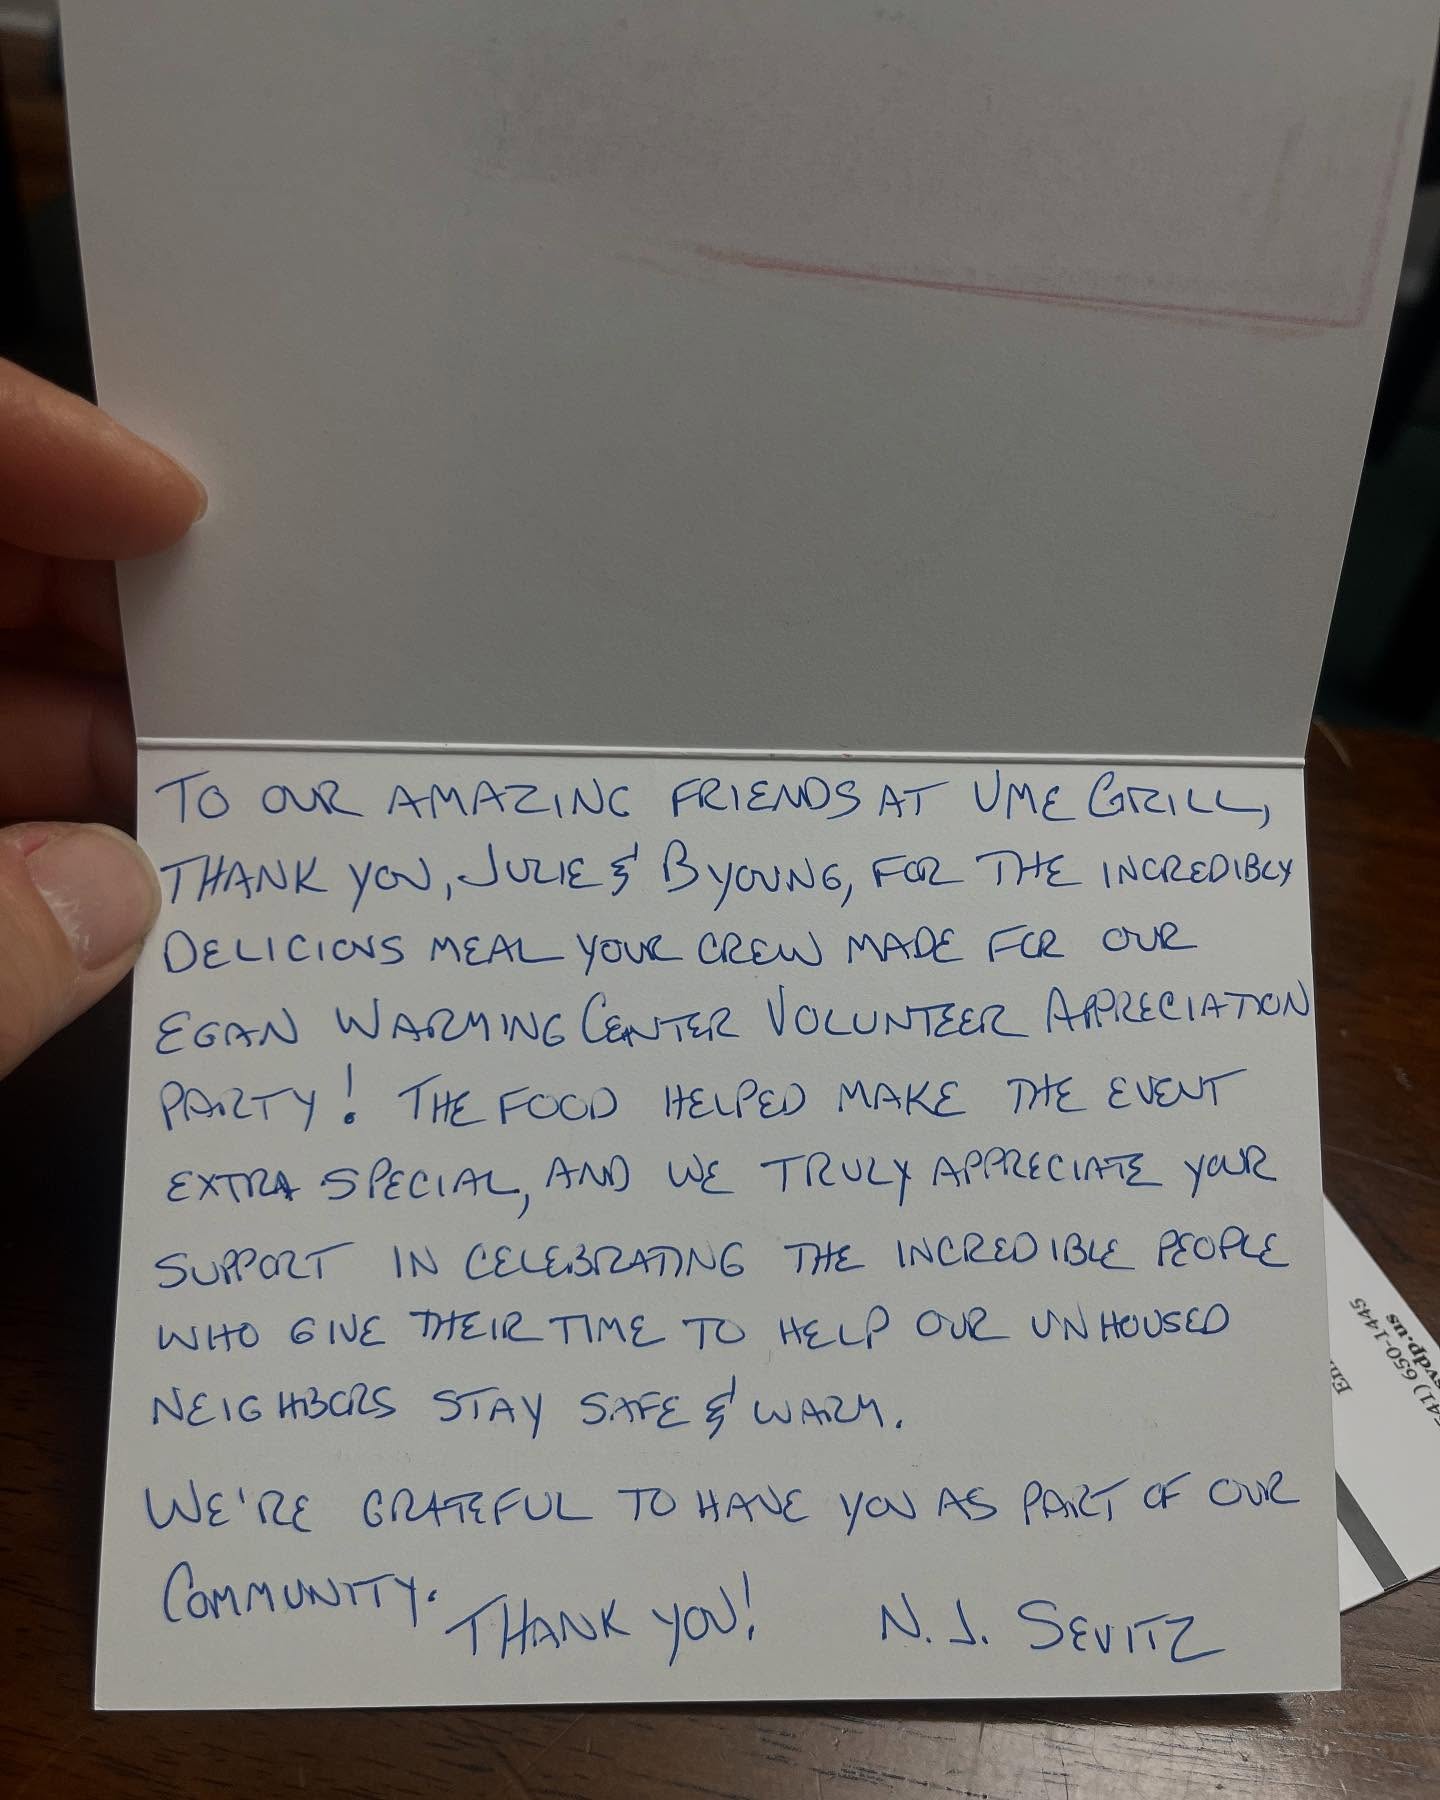 TO OUR AMAZING FRIENDS AT UME GRILL,
THANK YOU, JULIE & BYOUNG, FOR THE INCREDIBLY
DELICIOUS MEAL YOUR CREW MADE FOR OUR
EGAN WARMING CENTER VOLUNTEER APPRECIATION
PARTY! THE FOOD HELPED MAKE THE EVENT
EXTRA SPECIAL, AND WE TRULY APPRECIATE YOUR
SUPPORT IN CELEBRATING THE INCREDIBLE PEOPLE
WHO GIVE THEIR TIME TO HELP OUR UNHOUSED
NEIGHBORS STAY SAFE & WARM.
WE'RE GRATEFUL TO HAVE YOU AS PART OF OUR
COMMUNITY. THANK YOU! N. J. SEVITZ
541) 650-1445
svdp.us